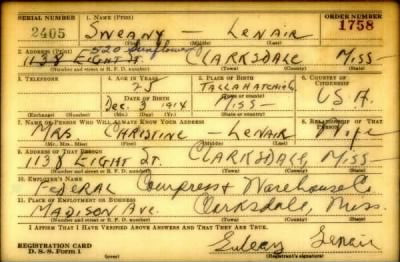 SERIAL NUMBER 1. NAME (Print) ORDER NUMBER
2405 SWEANY — LENAIR 1758
520 Sunflower
2. ADDRESS (Print)
1138 EIGHT ST. CLARKSDALE MISS-
(Number and street or R. F. D. number) (Town) (County) (State)
3. TELEPHONE 4. AGE IN YEARS 5. PLACE OF BIRTH 6. COUNTRY OF CITIZENSHIP
25 TALLAHATCHIE
DATE OF BIRTH (Town or county)
Dec. 3 1914 MISS- USA.
(Mo.) (Day) (Yr.) (State or country)
7. NAME OF PERSON WHO WILL ALWAYS KNOW YOUR ADDRESS 8. RELATIONSHIP OF THAT PERSON
MRS CHRISTINE — LENAIR Wife
(Mr., Mrs., Miss) (First) (Middle) (Last)
9. ADDRESS OF THAT PERSON
1138 EIGHT ST. CLARKSDALE, MISS.
(Number and street or R. F. D. number) (Town) (County) (State)
10. EMPLOYER'S NAME
Federal Compress & Warehouse Co
11. PLACE OF EMPLOYMENT OR BUSINESS
MADISON AVE. Clarksdale, Miss.
(Number and street or R. F. D. number) (Town) (County) (State)
I AFFIRM THAT I HAVE VERIFIED ABOVE ANSWERS AND THAT THEY ARE TRUE.
REGISTRATION CARD
D. S. S. Form 1 Lenair
(Registrant's signature)